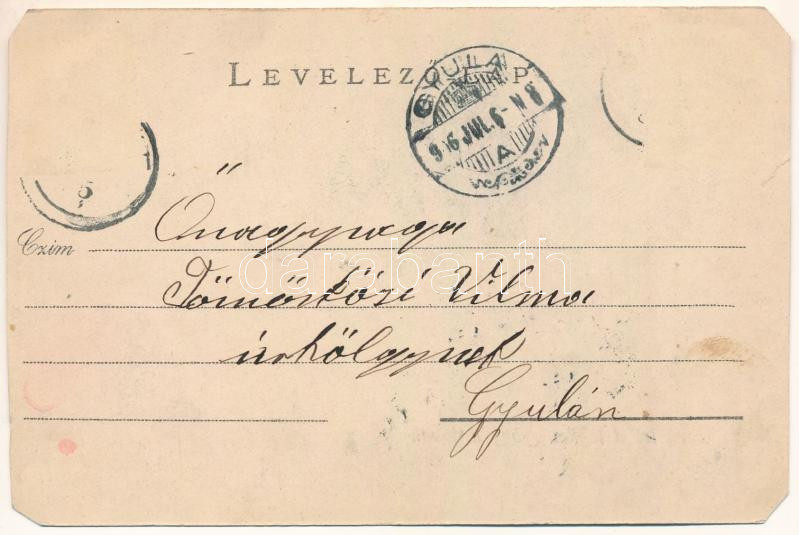 LEVELEZŐ P
GYULA
906 JUL. 6 N 8
A
5
Czim Őnagysága
Tömösközi Vilma
úrhölgynek
Gyulán
darabanth